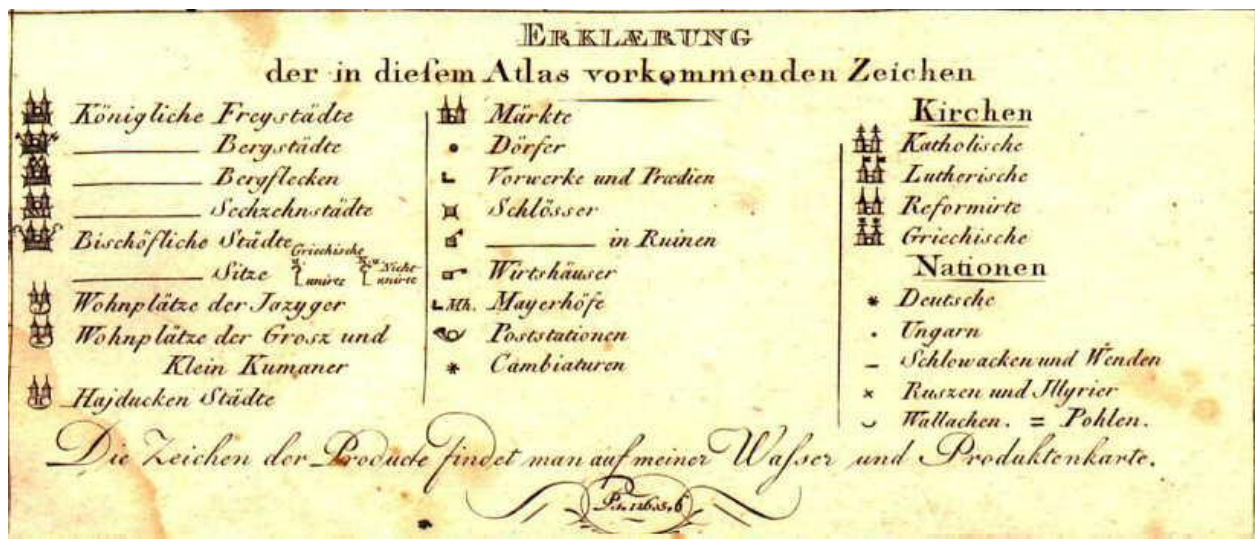 ERKLÆRUNG
der in dieſem Atlas vorkommenden Zeichen
Königliche Freystädte
——— Bergstädte
——— Bergflecken
——— Sechzehnstädte
Bischöfliche Städte
——— Sitze
Griechische
unirte
Nicht
unirte
Wohnplätze der Jazyger
Wohnplätze der Grosz und
Klein Kumaner
Hajducken Städte
Märkte
Dörfer
Vorwerke und Prædien
Schlösser
——— in Ruinen
Wirtshäuser
Mh. Mayerhöfe
Poststationen
Cambiaturen
Kirchen
Katholische
Lutherische
Reformirte
Griechische
Nationen
Deutsche
Ungarn
Schlowacken und Wenden
Ruszen und Illyrier
Wallachen. = Pohlen.
Die Zeichen der Producte findet man auf meiner Waſser und Produktenkarte.